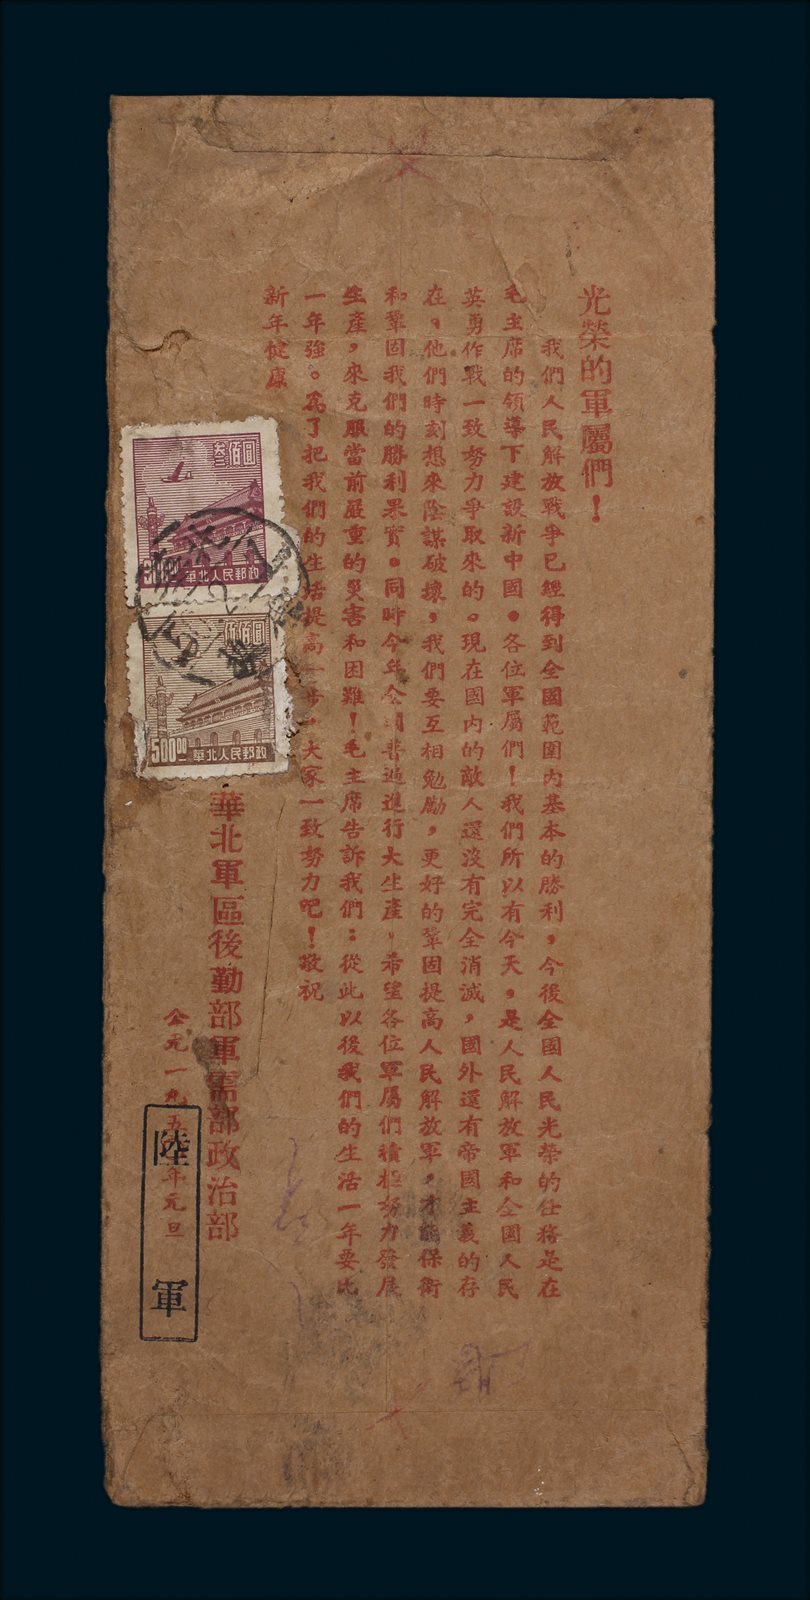 光榮的軍屬們！
我們人民解放戰爭已經得到全國範圍內基本的勝利，今後全國人民光榮的任務是在
毛主席的領導下建設新中國。各位軍屬們！我們所以有今天，是人民解放軍和全國人民
英勇作戰一致努力爭取來的。現在國內的敵人還沒有完全消滅，國外還有帝國主義的存
在。他們時刻想來陰謀破壞，我們要互相勉勵，更好的鞏固提高人民解放軍，才能保衛
和鞏固我們的勝利果實。同時今年全國普遍進行大生產，希望各位軍屬們積極努力發展
生產，來克服當前嚴重的災害和困難！毛主席告訴我們：從此以後我們的生活一年要比
一年強。為了把我們的生活提高一步，大家一致努力吧！敬祝
新年健康
華北軍區後勤部軍需部政治部
公元一九五 年元旦
陸軍
叁佰圓
華北人民郵政
伍佰圓
500⁰⁰
華北人民郵政